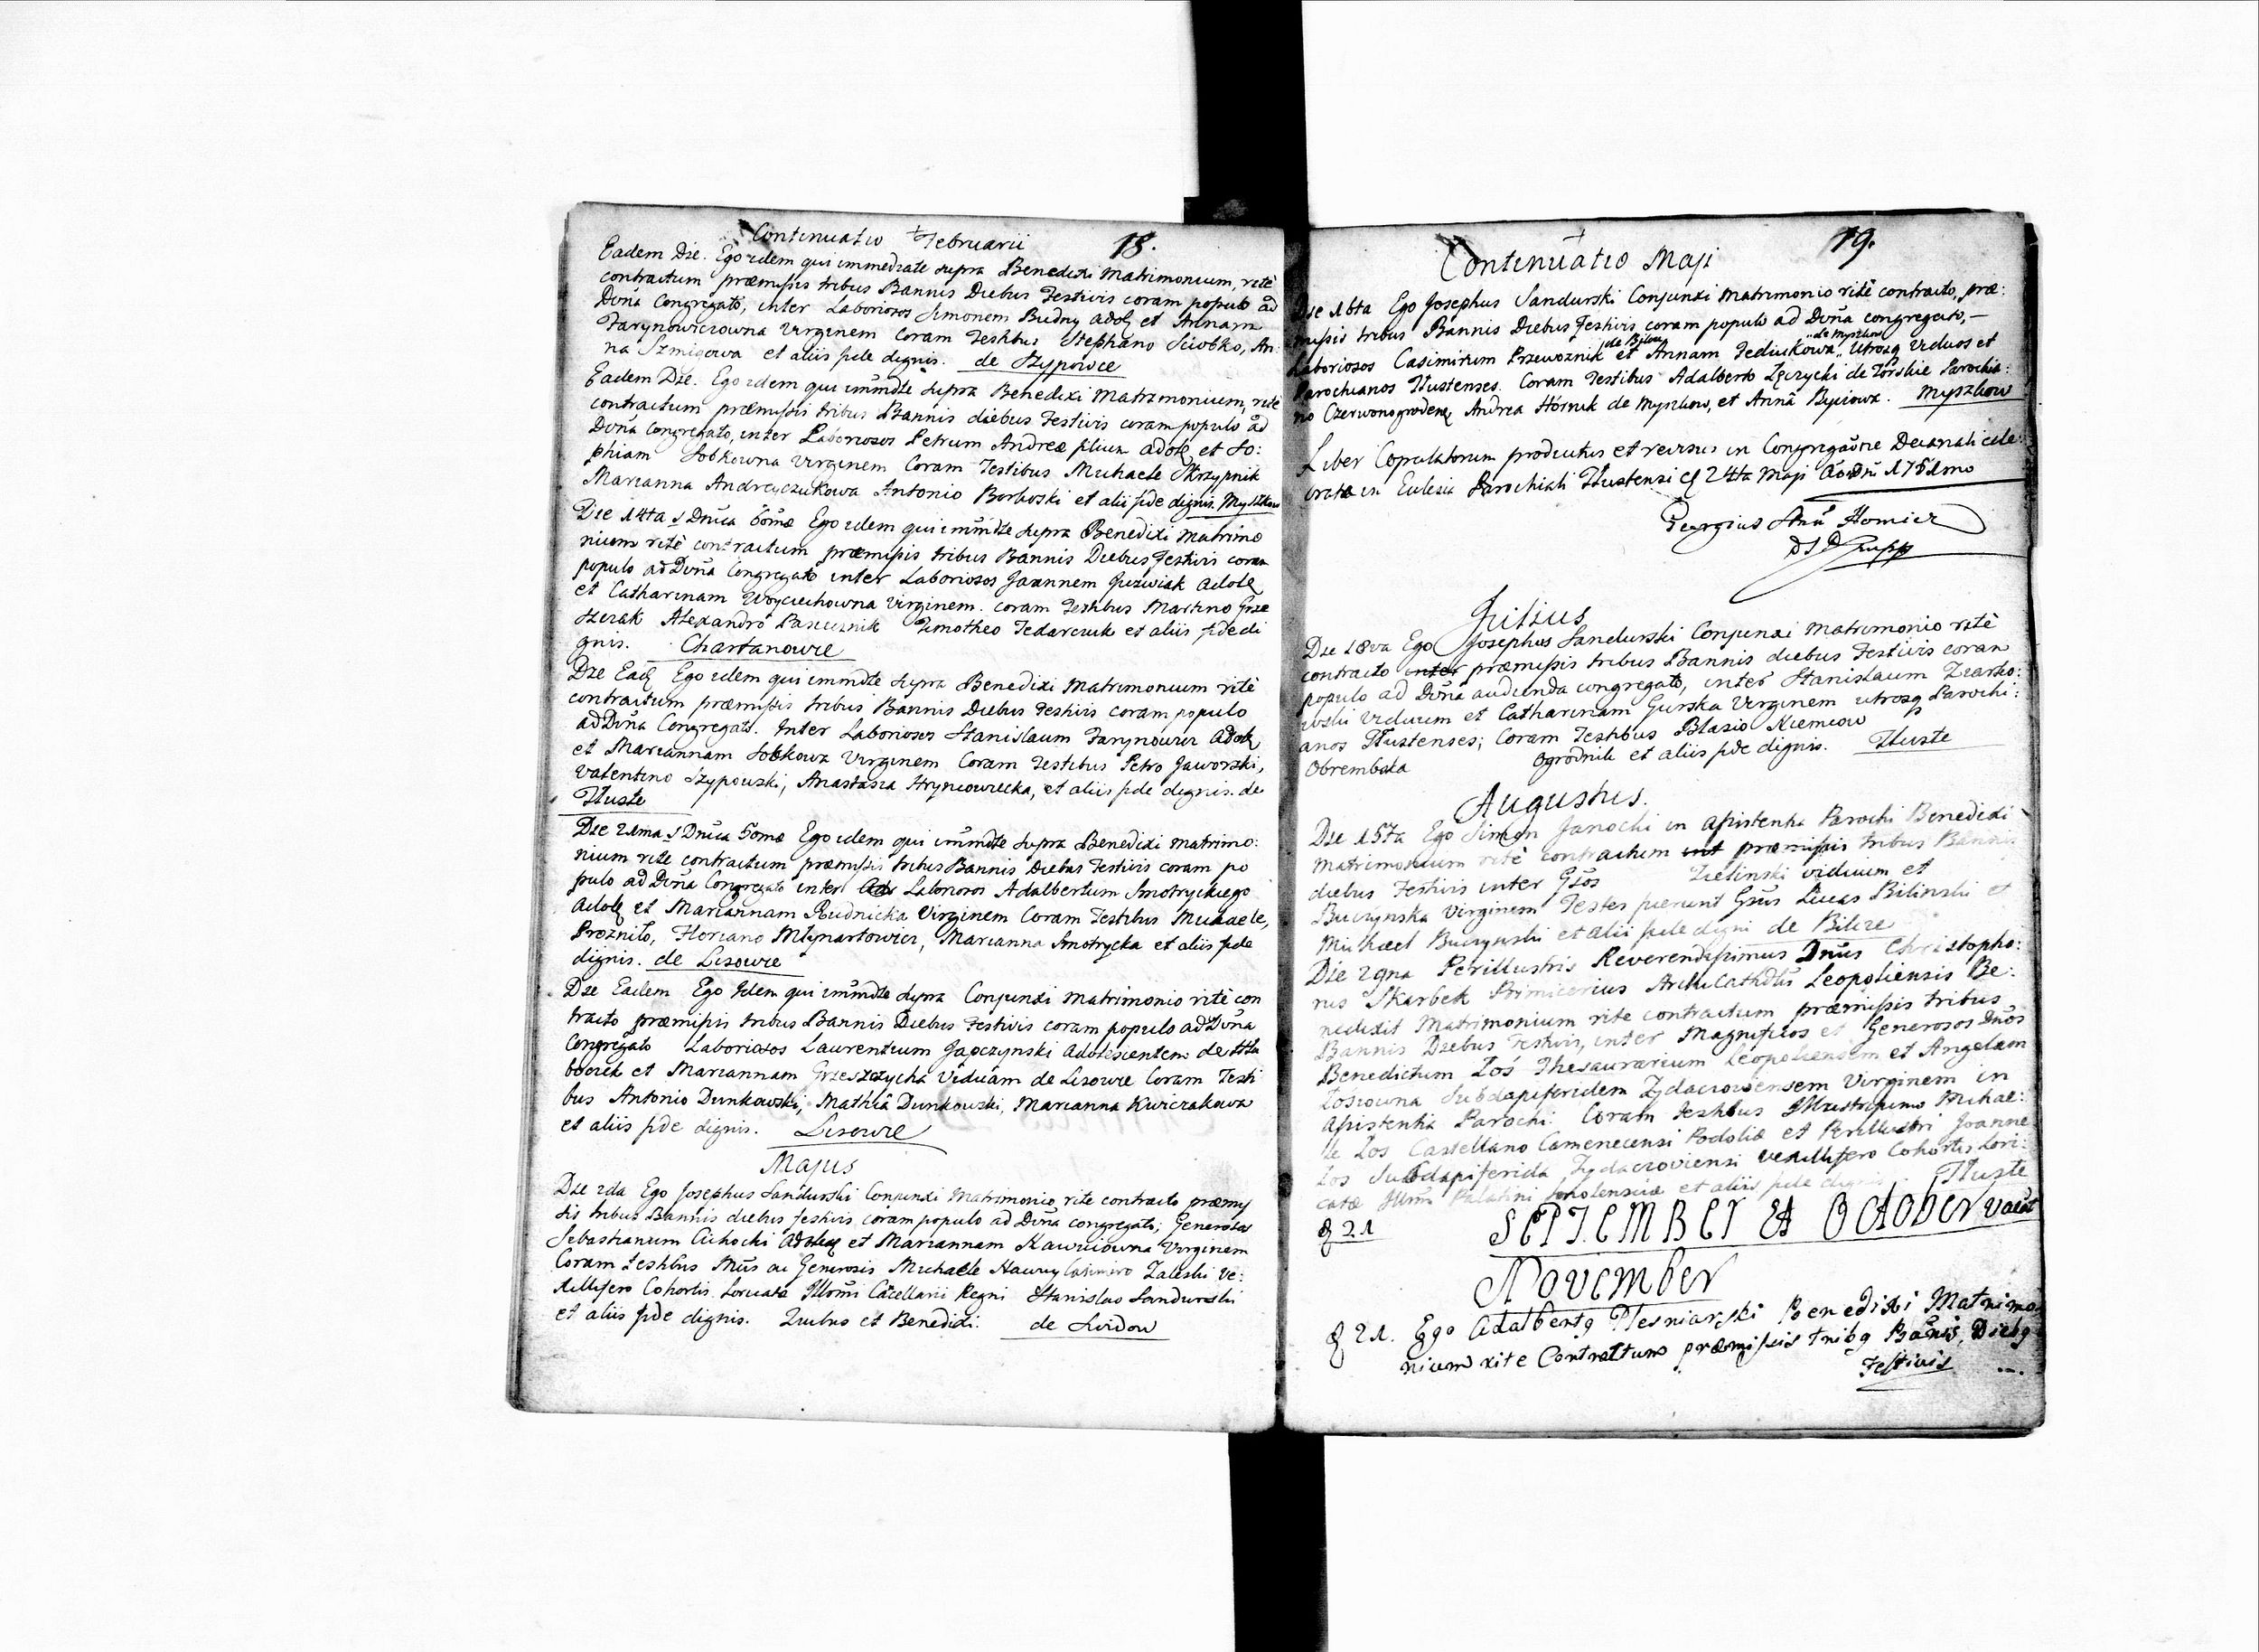 Continuatio Februarii 18.
Eadem Die. Ego idem qui immediate supra Benedixi Matrimonium, ritè
contractum præmissis tribus Bannis Diebus Festivis coram populo ad
Divña Congregato, inter Laboriosos Simonem Budny adol et Annam
Farynowiczowna Virginem Coram Testibus Stephano Sciobko, An:
na Szmigowa et aliis fide dignis. de Szypowce
Eadem Die. Ego idem qui immdte supra Benedixi Matrimonium, ritè
contractum præmissis tribus Bannis diebus Festivis coram populo ad
Divña Congregato, inter Laboriosos Petrum Andreæ filium adol et So:
phiam Sobkowna Virginem Coram Testibus Michaele Skrzypnik
Marianna Andreyczukowa Antonio Borkoski et alii fide dignis. Myszkow
Die 14ta s Dnica 6omæ Ego idem qui immdte supra Benedixi Matrimo
nium ritè contractum præmissis tribus Bannis Diebus Festivis coram
populo ad Divña Congregato inter Laboriosos Joannem Juzwiak adol
et Catharinam Woyciechowna Virginem. coram Testibus Martino Grze
szczak Alexandro Pasiecznik Timotheo Fedarczuk et aliis fide di
gnis. Chartanowce
Die Ead Ego idem qui immdte supra Benedixi Matrimonium ritè
contractum præmissis tribus Bannis Diebus Festivis coram populo
ad Divña Congregato. Inter Laboriosos Stanislaum Farynowicz adol
et Mariannam Sobkowa Virginem Coram Testibus Petro Jaworski,
Valentino Szypowski, Anastasia Hryniowiecka, et aliis fide dignis. de
Tłuste
Die 21ma s Dnica 5omæ Ego idem qui immdte supra Benedixi matrimo:
nium rite contractum præmissis tribus Bannis Diebus Festivis coram po
pulo ad Divña Congregato inter Laboriosos Adalbertum Smotryckiego
adol et Mariannam Rudnicka Virginem Coram Testibus Michaele,
Proznilo, Floriano Młynartowicz, Marianna Smotrycka et aliis fide
dignis. de Lisowce
Die Eadem Ego Idem qui immdte supra Conjunxi Matrimonio ritè con
tracto præmissis tribus Bannis Diebus Festivis coram populo ad Divña
Congregato Laboriosos Laurentium Japczynski Adolescentem de Hłu
boczek et Mariannam Grzeszczycha Viduam de Lisowce Coram Testi
bus Antonio Dunkowski, Mathia Dunkowski, Marianna Kwiczakowa
et aliis fide dignis. Lisowce
Majus
Die 2da Ego Josephus Sandurski Conjunxi Matrimonio rite contracto præmis
sis tribus Bannis diebus festivis coram populo ad Divña congregato; Generosos
Sebastianum Cichocki Adol et Mariannam Kaweciowna Virginem
Coram testibus Mñs ac Generosis Michaele Hawny Casimiro Zaleski Ve:
xillifero Cohortis Loricatæ Illomi Cacellarii Regni Stanislao Sandurski
et aliis fide dignis. et Benedixi. de Swidow
Continuatio Maji 19.
Die 16ta Ego Josephus Sandurski Conjunxi Matrimonio ritè contracto, præ:
missis tribus Bannis Diebus Festivis coram populo ad Divña congregato,-
Laboriosos Casimirum Przewoznik de Bilcze et Annam Fediukowa de Myszkow Utrosq Viduos et
Parochianos Tłustenses. Coram Testibus Adalberto Łęczycki de Torskie Parochia:
no Czerwonogrodens Andrea Hornik de Myszkow, et Anna Byciowa. Myszkow
Liber Copulatorum productus et revisus in Congregaõne Decanali cele:
brata in Ecclesia Parochiali Tłustensi d 24ta Maji Ao Dni 1751mo
Georgius Homicz
Julius
Die 18va Ego Josephus Sandurski Conjunxi Matrimonio ritè
contracto inter præmissis tribus Bannis diebus Festivis coram
populo ad Divña audienda congregato, inter Stanislaum Ziarko:
wski Viduum et Catharinam Gurska Virginem utrosq Parochi:
anos Tłustenses; Coram Testibus Blasio Niemcow
Obrembska Ogrodnik et aliis fide dignis. Tłuste
Augustus.
Die 15ta Ego Simon Janocki in assistentia Parochi Benedixi
Matrimonium ritè contractum int præmissis tribus Bannis
diebus Festivis inter Gsos Zielinski viduum et
Buczynska Virginem Testes fuerunt Gsus Lucas Bilinski et
Michael Buczynski et alii fide digni de Bilcze
Die 29na Perillustris Reverendissimus Dnus Christopho:
rus Skarbek Primicerius Archi Cathdlis Leopoliensis Be:
nedixit Matrimonium rite contractum præmissis tribus
Bannis Diebus Festivis, inter Magnificos et Generosos Dnos
Benedictum Łoś Thesaurarium Leopoliensem et Angelam
Łosiowna Subdapiferidem Zydacroviensem Virginem in
assistentia Parochi. Coram testibus Illustrissimo Michae:
le Łos Castellano Camenecensi Podoliæ et Perillustri Joanne
Łos Subdapiferida Zydacroviensi vexillifero Cohortis Lori:
catæ Illmi Palatini Smolensciæ et aliis fide dignis. Tłuste
d 21 SEPTEMBER Et OCtOBER vacat
NOVEMBER
d 21. Ego Adalbertq Plesniarski Benedixi Matrimo
nium rite Contractum præmissis tribq Banis, Diebq
Festivis ...